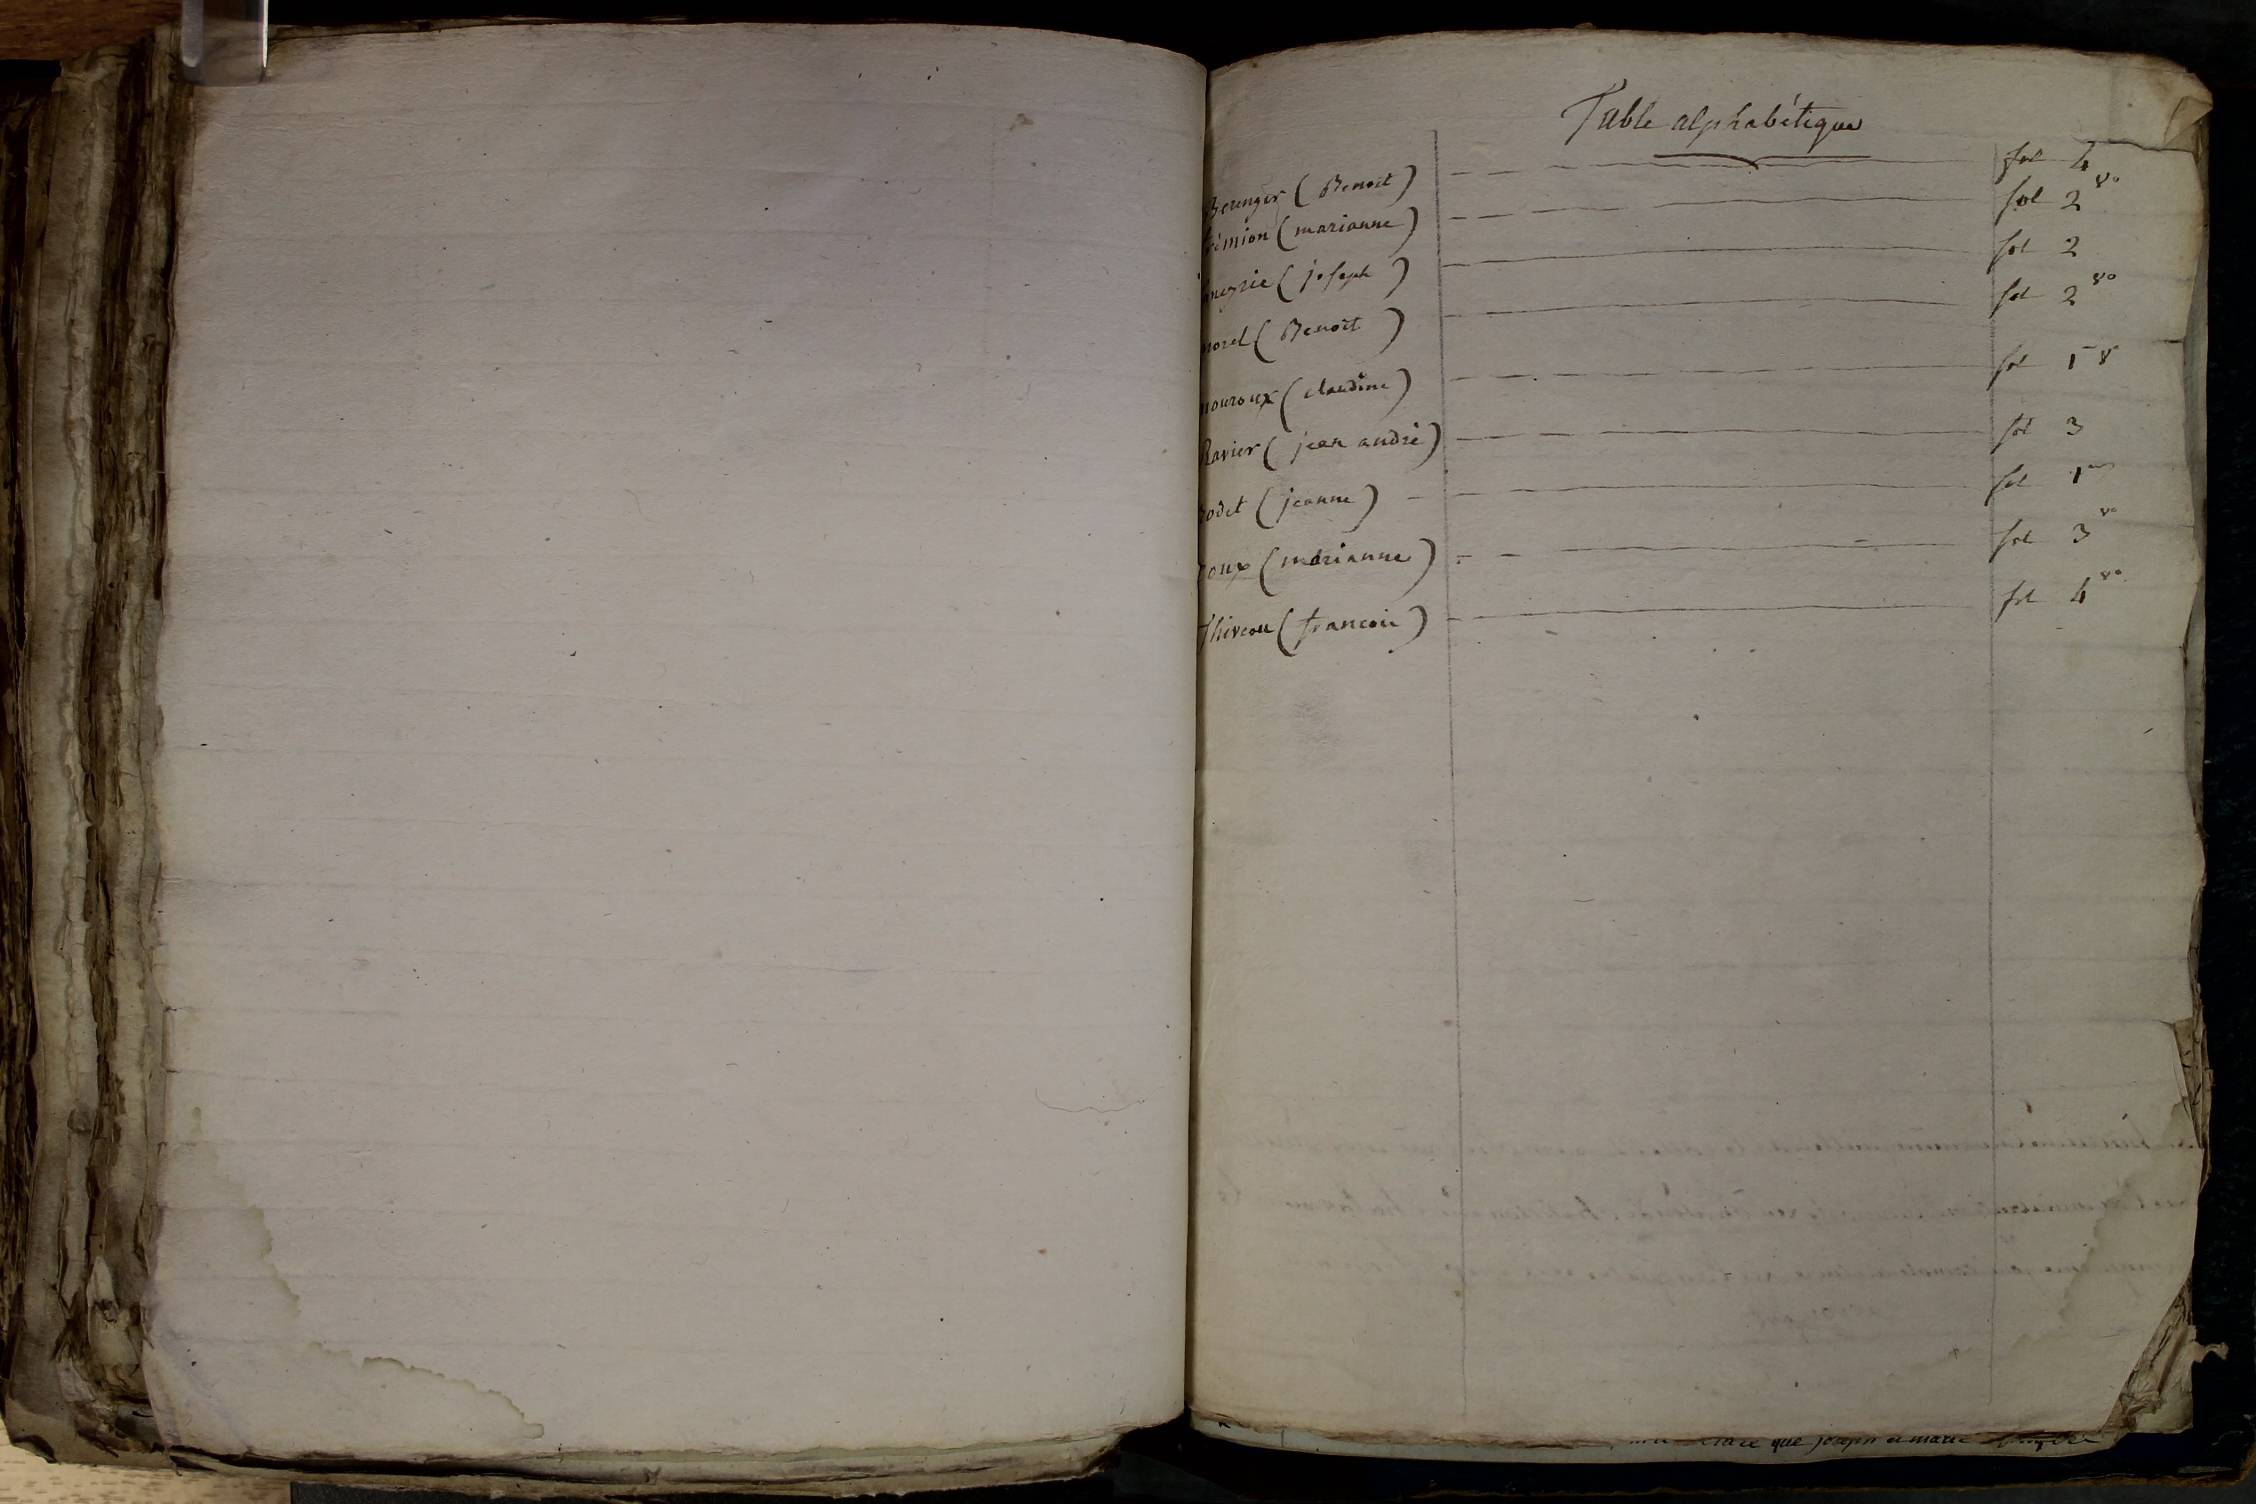 Table alphabétique
Berenger (Benoit) fol 4
frémion (marianne) fol 2 vo
(joseph) fol 2
morel (Benoit) fol 2 vo
mouroux (claudine) fol 1 v
Ravier (jean andré) fol 3
rodet (jeanne) fol 1
roux (marianne) fol 3 vo
Thiveau (francois) fol 4 vo
que joseph et marie